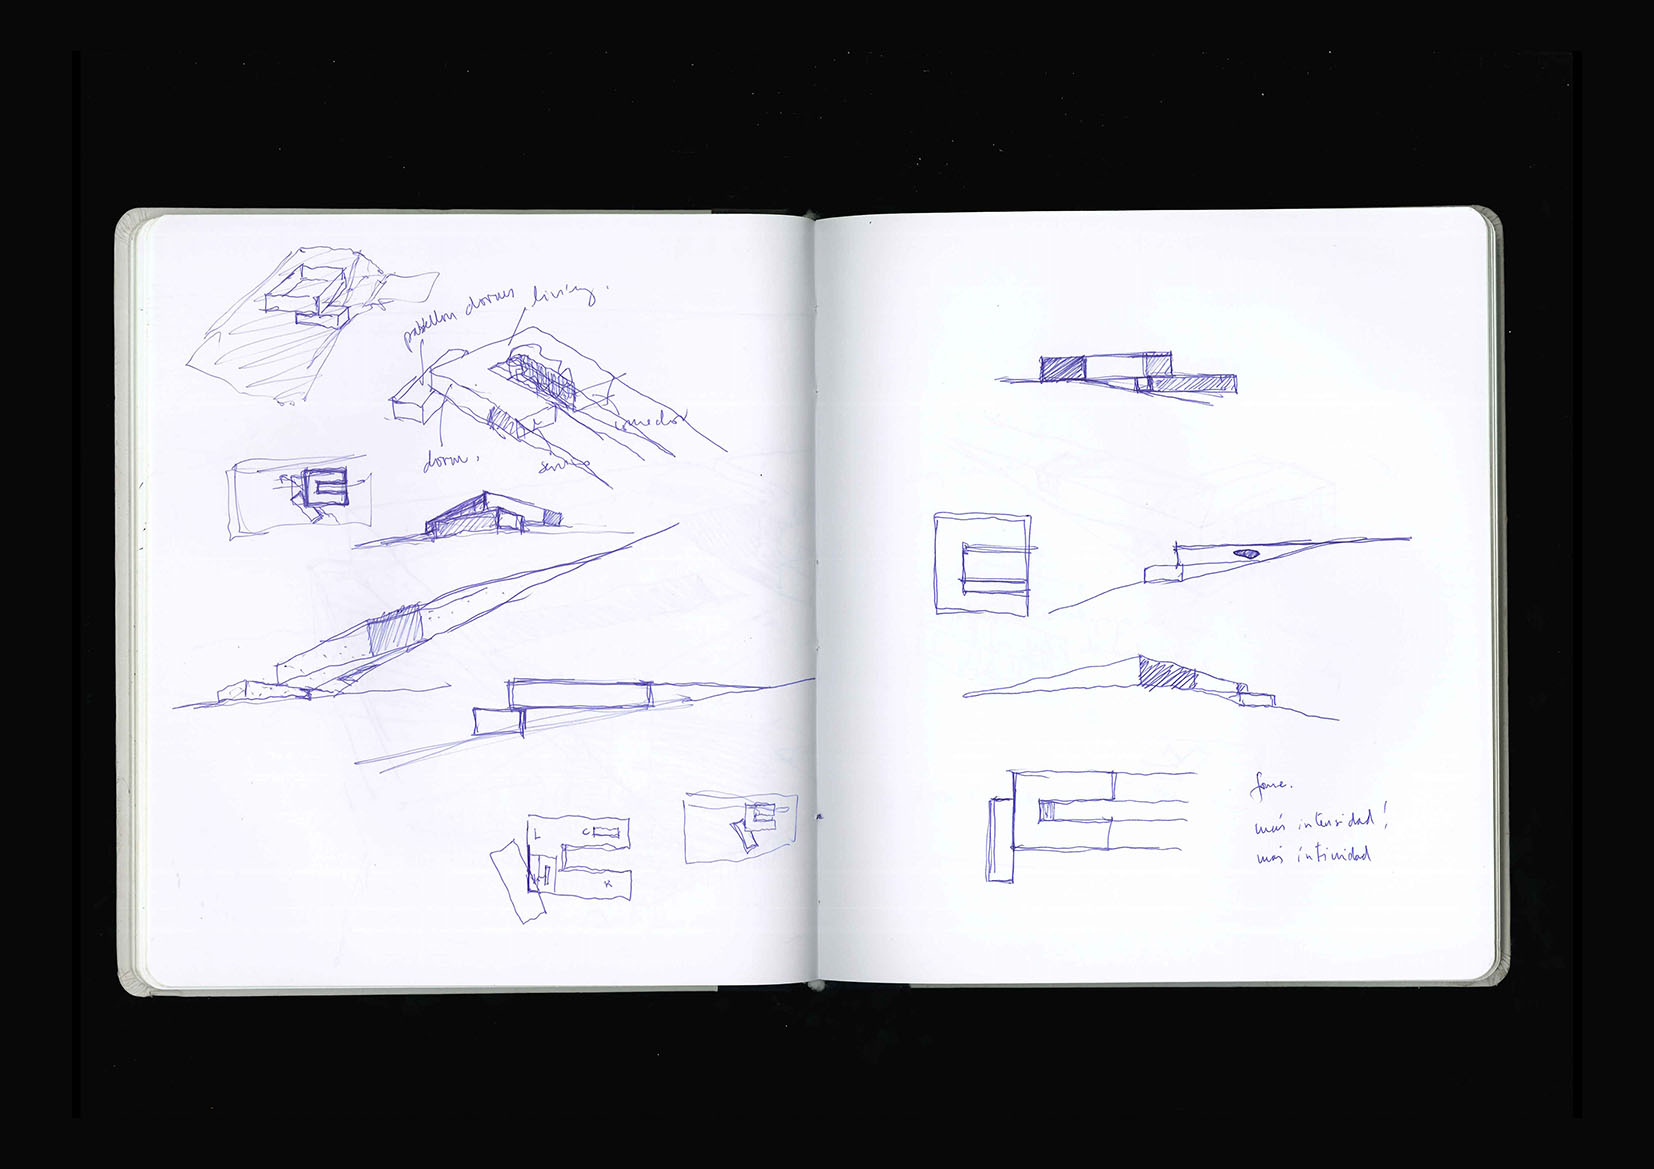 pabellon dorms living.
comedor
dorm.
L C
K
fome.
más intensidad!
más intimidad